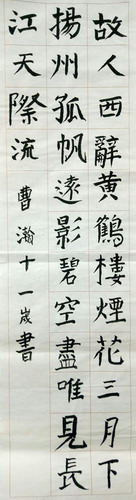 故人西辭黃鶴樓煙花三月下
揚州孤帆遠影碧空盡唯見長
江天際流 曹瀚十一歲書